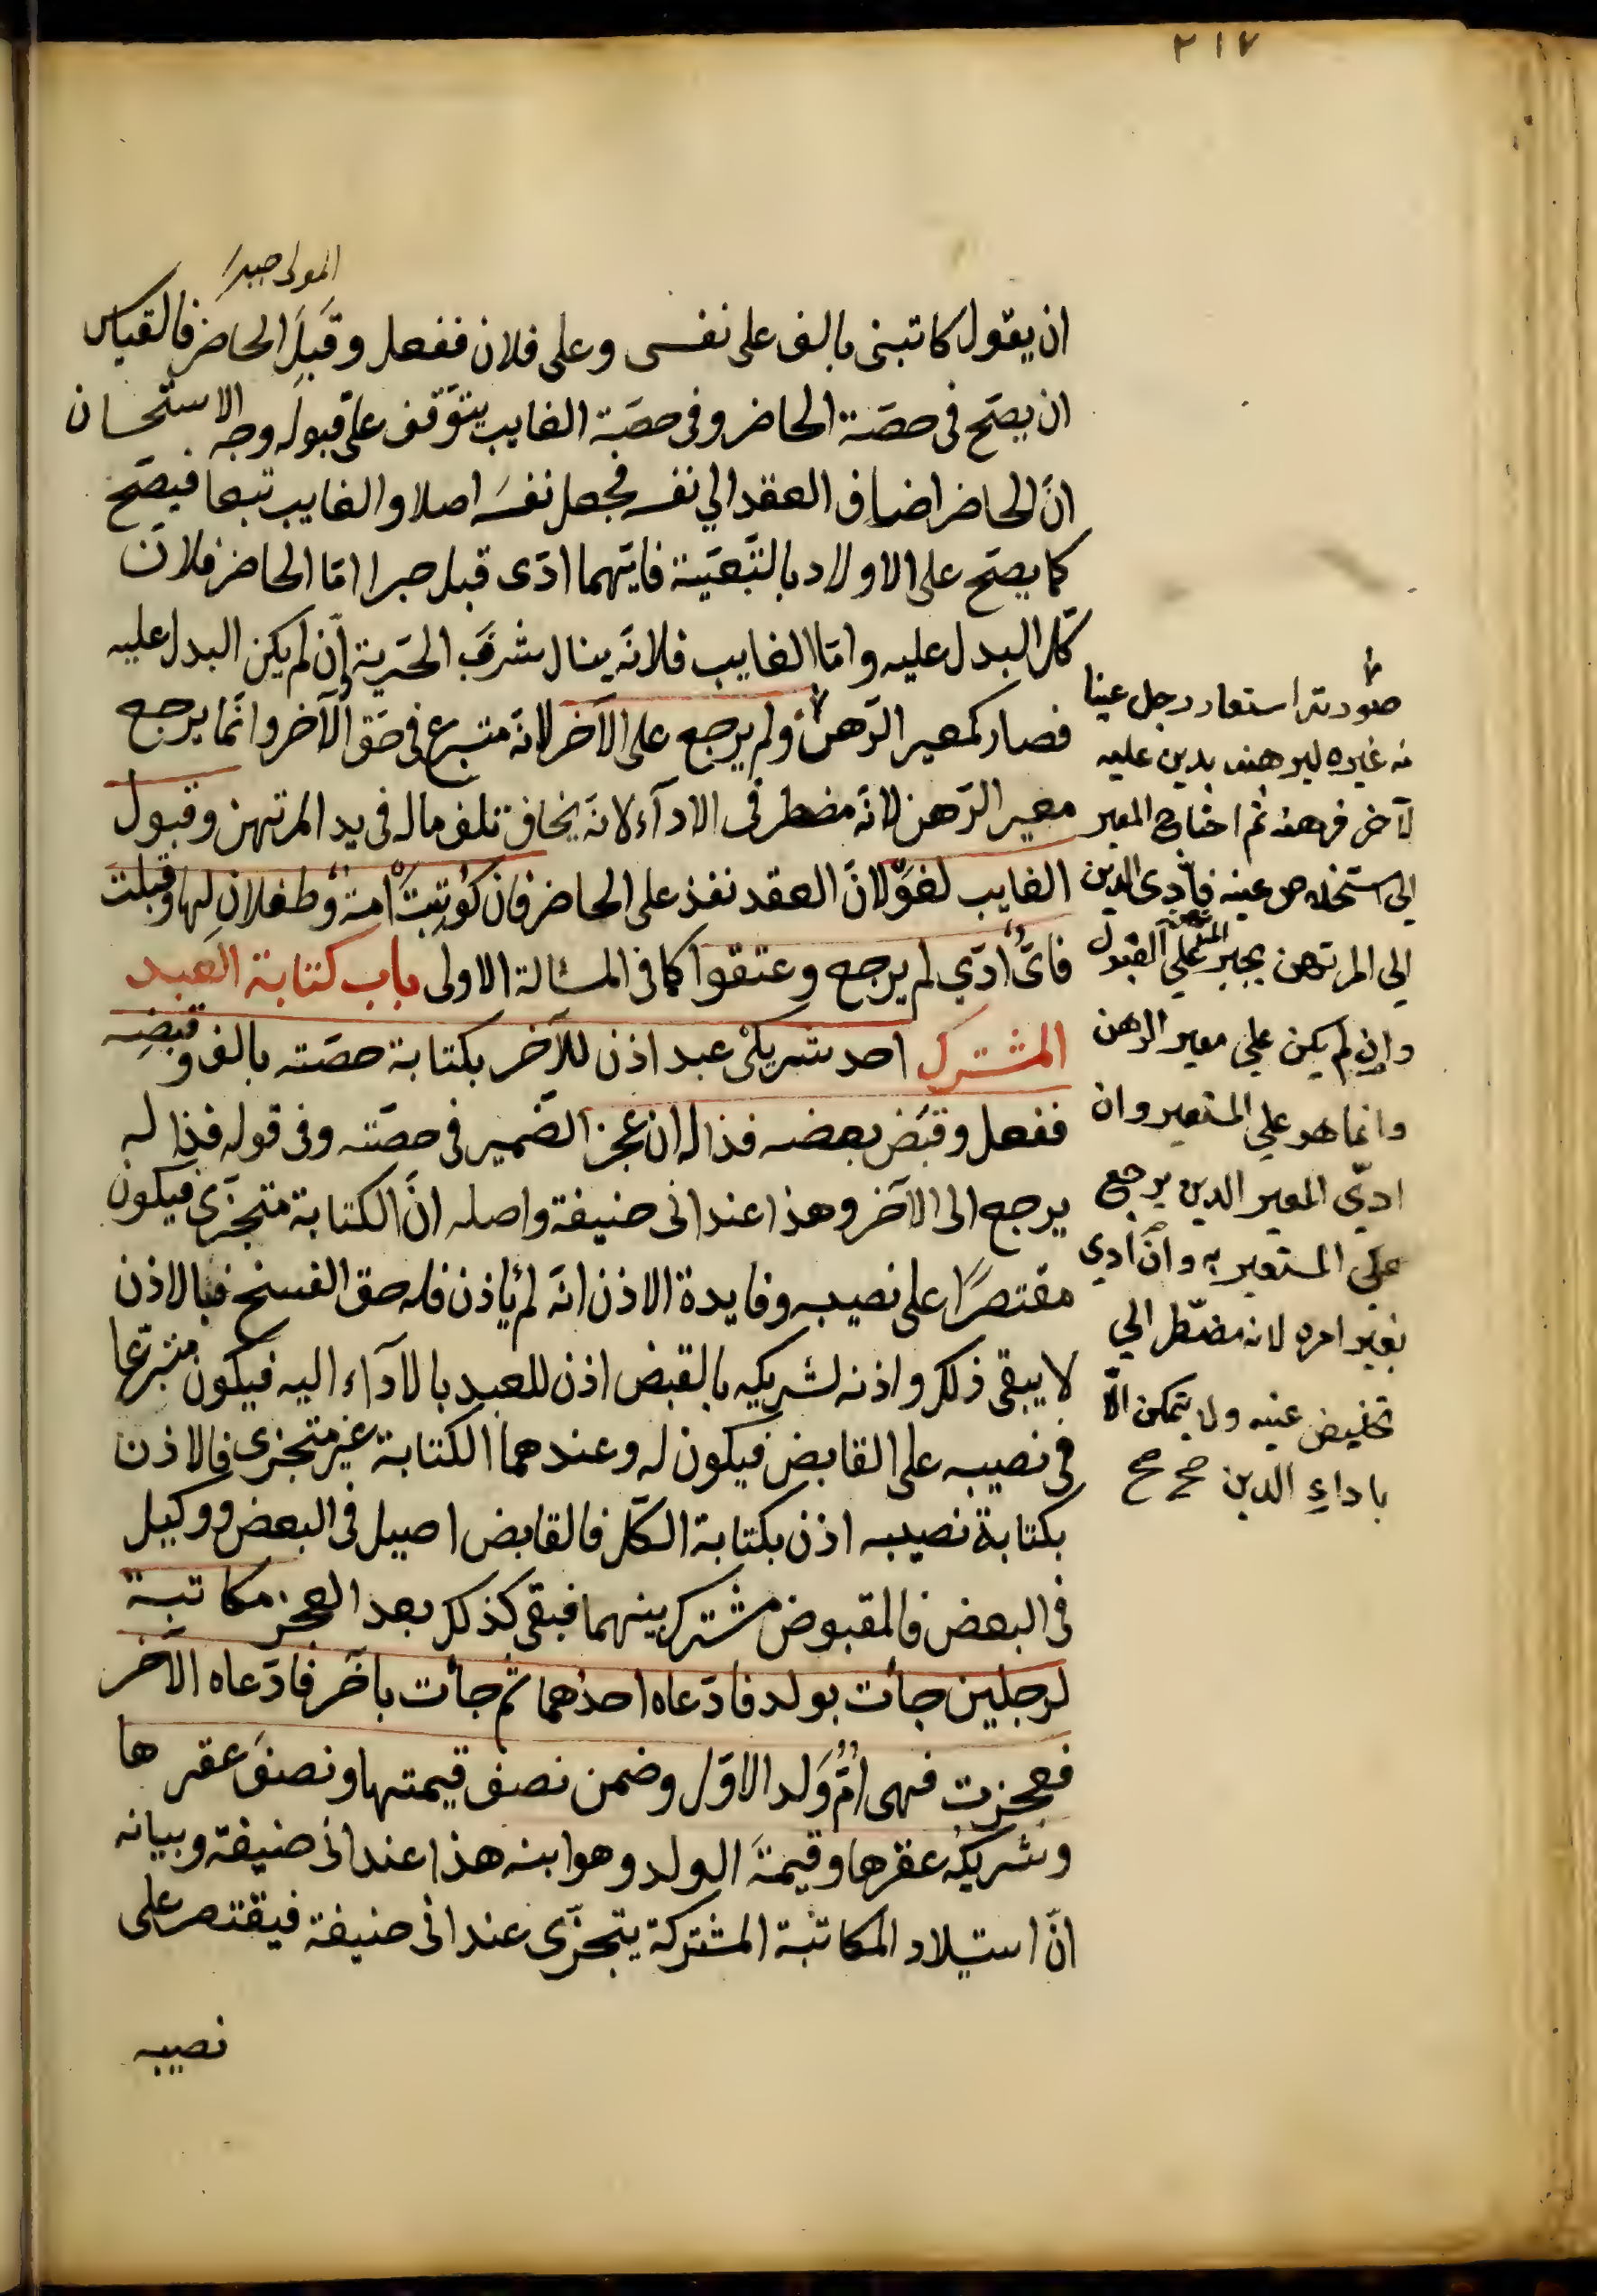 ٢١٧
المولى جبرا
ان يقول كاتبنى بالف على نفسى وعلى فلان ففعل وقَبِلَ الحاضر فالقياس
ان يصحّ فى حصّة الحاضر وفى حصّة الغايب يتوَقف على قبوله وجه الاستحسان
انّ الحاضر اضاف العقد الي نفسه فجعل نفسَه اصلا والغايب تبعا فيصحّ
كما يصحّ على الاولاد بالتّبعيّة فايّهما ادّى قبل جبرا امّا الحاضر فلانّ
كلّ البدل عليه وامّا الغايب فلانّه ينال شرفَ الحريّة وان لم يكن البدل عليه
فصار كمعير الرّهن ولم يرجع على الآخر لانّه متبرع فى حقّ الآخر وانّما يرجع
معير الرّهن لانّه مضطر فى الادآء لانّه يخاف تلف ماله فى يد المرتهن وقبول
الغايب لغوٌ لانّ العقد نفذ على الحاضر فان كُوتِبَتْ امةٌ وطفلانِ لها وقبلت
فاىٌّ ادّي لم يرجع وعتقوا كما فى المسالة الاولى باب كتابة العبد
المشترك احد شريكَىْ عبد اذن للآخر بكتابة حصّته بالف وقبضِه
ففعل وقبَض بعضه فذا له ان عجز الضّمير فى حصّته وفى قوله فذا له
يرجع الى الآخر وهذا عند ابى حنيفة واصله انّ الكتابة متجزّى فيكون
مقتصرًا على نصيبه وفايدة الاذن انّه لم ياذن فله حق الفسخ فبالاذن
لا يبقى ذلك واذنه لشريكه بالقبض اذن للعبد بالادآء اليه فيكون متبرّعا
فى نصيبه على القابض فيكون له وعندهما الكتابة غير متجزى فالاذن
بكتابة نصيبه اذن بكتابة الكلّ فالقابض اصيل فى البعض ووكيل
فى البعض فالمقبوض مشترك بينهما فبقى كذلك بعد العجز مكاتبة
لرجلين جأت بولد فادّعاه احدُهما ثم جأت بآخَر فادّعاه الآخر
فعجزت فهى امُّ وَلد الاوّل وضمن نصف قيمتها ونصفَ عقرها
وشريكُه عقرَها وقيمةَ الولد وهو ابنه هذا عند ابى حنيفة وبيانه
انّ استيلاد المكاتبة المشتركة يتجزّى عند ابى حنيفة فيقتصر على
نصيبه
صورته استعار رجل عينا
من غيره ليرهنه بدين عليه
لآخر فرهنه ثم احتاج المعير
الى استخلاص عينه فادّى الدين
الي المرتهن يجبر المرتهن علي القبول
وان لم يكن علي معير الرهن
وانما هو علي المستعير وان
ادّي المعير الدين يرجع
علي المستعير به وان ادي
بغير امره لانه مضطر الي
تخليص عينه ولا يتمكن الّا
باداء الدين صح صح